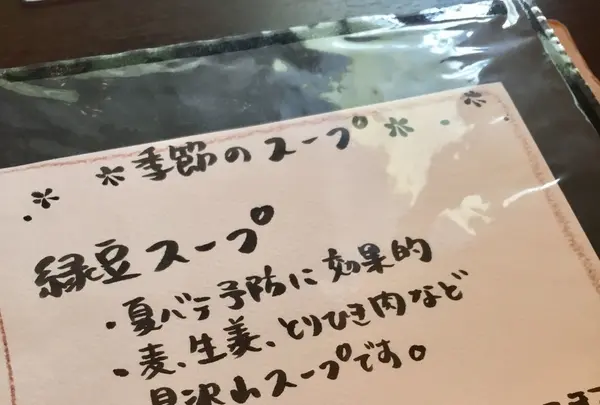 *季節のスープ*
緑豆スープ
・夏バテ予防に効果的
・麦、生姜、とりひき肉など
具沢山スープです。